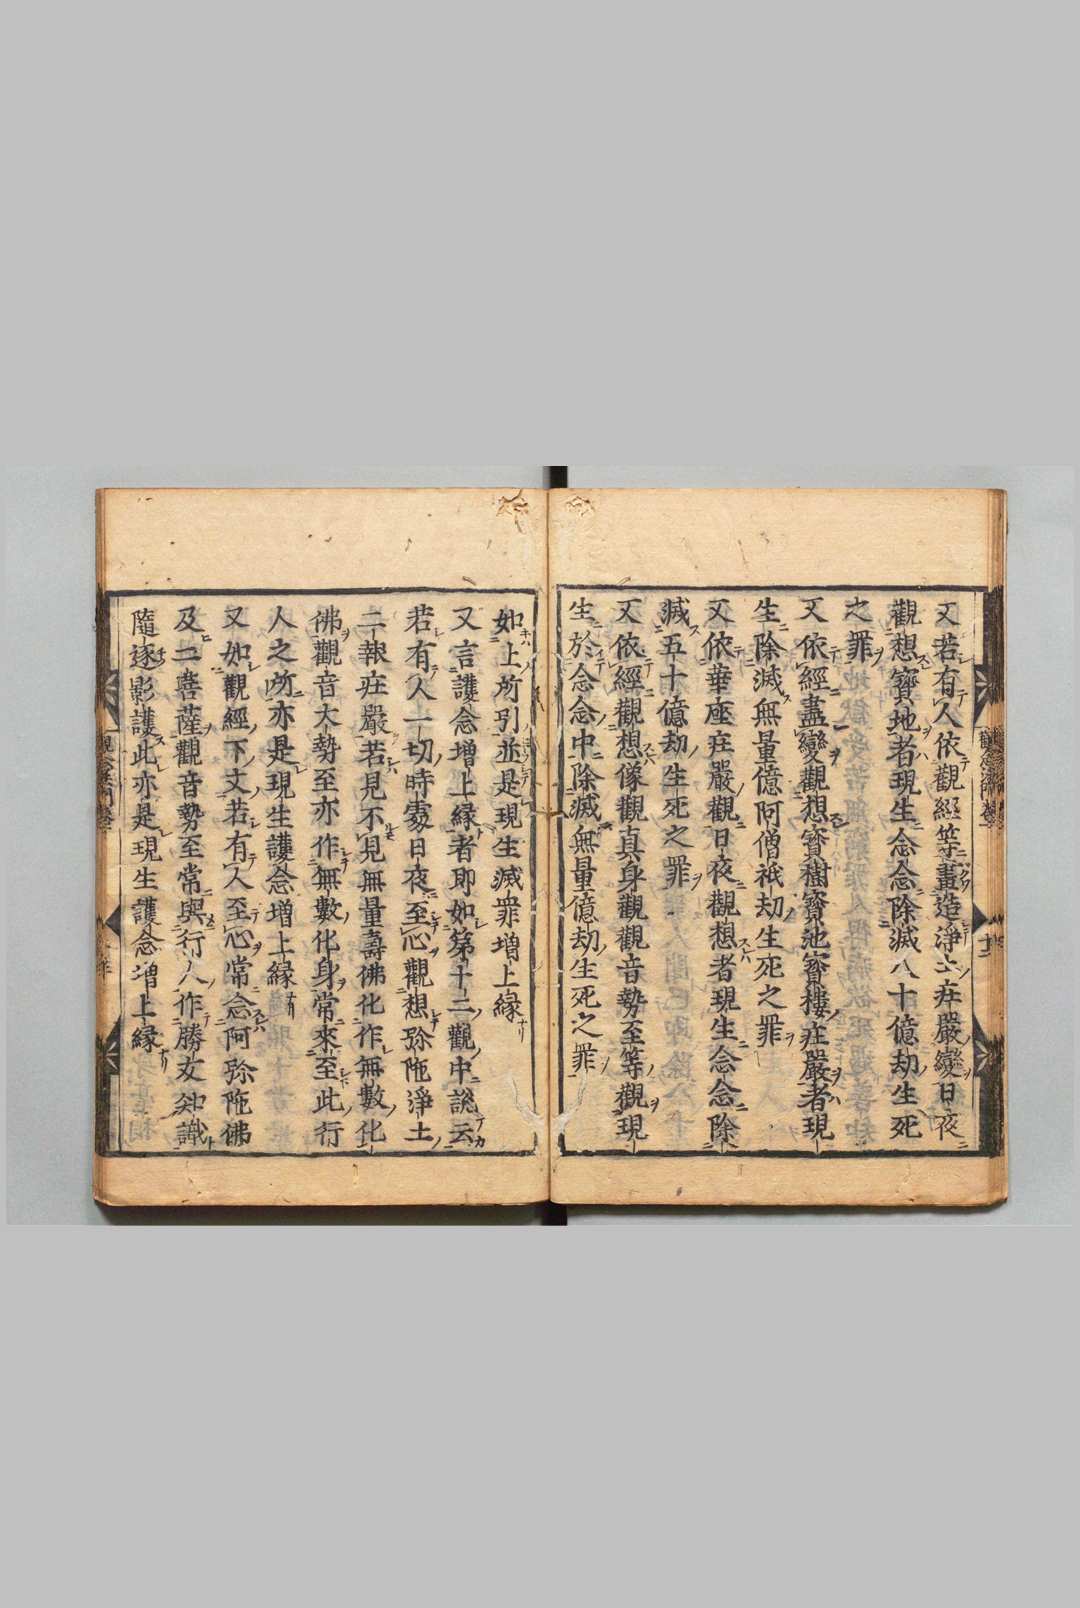 又若有人依觀經等畫造淨土莊嚴變日夜
觀想寳地者現生念念除滅八十億劫生死
之罪
又依經畫變觀想寳樹寳池寳樓莊嚴者現
生除滅無量億阿僧祇劫生死之罪
又依華座莊嚴觀日夜觀想者現生念念除
滅五十億劫生死之罪
又依經觀想像觀真身觀觀音勢至等觀現
生於念念中除滅無量億劫生死之罪
如上所引並是現生滅罪增上緣
又言護念增上緣者即如第十二觀中說云
若有人一切時處日夜至心觀想弥陁淨土
二報莊嚴若見不見無量壽佛化作無數化
佛觀音大勢至亦作無數化身常來至此行
人之所亦是現生護念增上緣
又如觀經下文若有人至心常念阿弥陁佛
及二菩薩觀音勢至常與行人作勝友知識
隨逐影護此亦是現生護念增上緣